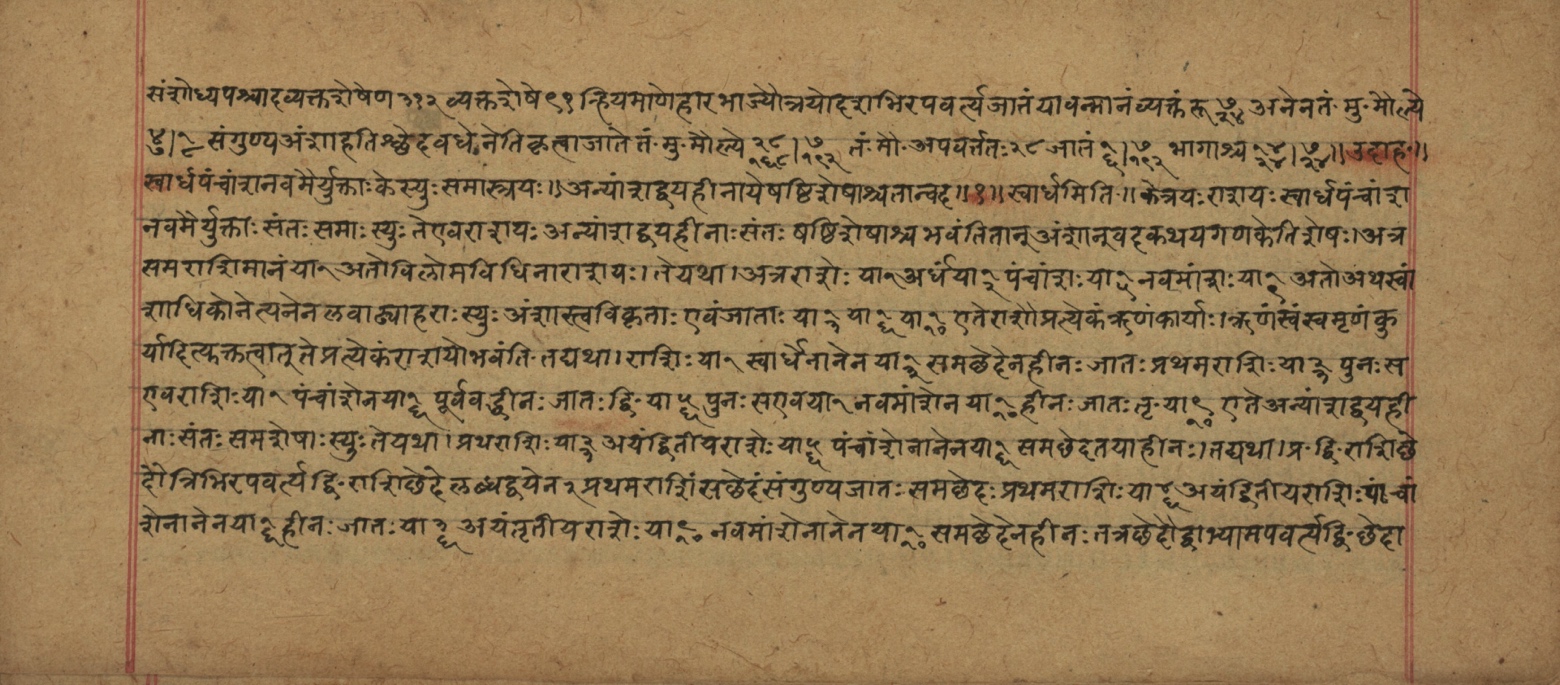 संशोध्य पश्चादव्यक्तशेषेण ३१२ व्यक्तशेषे ९१ न्हियमाणे हारभाज्यौ त्रयोदशभिरपवर्त्य जातं यावन्मानं व्यक्तं रू ७/२४ अनेन तं॰ मु॰ मौल्ये
संगुण्य अंशाहतिश्छेदवधेनेति कृत्वा जाते तं॰ मु॰ मौल्ये २८/१६८ । ७/१९२ तं॰ मौ॰ अपवर्त्तितः २८ जातं १/६ । ७/१९२ भागाश्च ७/२४ । ७/२४ ॥ उदाह॰॥
स्वार्धपंचांशनवमैर्युक्ताः के स्युः समास्त्रयः॥ अन्यांशद्वयहीना ये षष्ठिशेषाश्च तान्वद॥१॥ स्वार्धमिति॰॥ के त्रयः राशयः स्वार्धपंचांश
नवमैर्युक्ताः संतः समाः स्युः ते एव राशयः अन्यांशद्वयहीनाः संतः षष्ठिशेषाश्च भवंति तान् अंशान् वद कथय गणकेति शेषः। अत्र
समराशिमानं या १ अतो विलोमविधिना राशयः। ते यथा। अत्र राशेः या १ अर्धं या १/२ पंचांशः या १/५ नवमांशः या १/९ अतो अथ स्वां
शाधिकोनेत्यनेन लवाढ्याहराः स्युः अंशास्त्वविकृताः एवं जाताः या १/३ या १/६ या १/१० एते राशौ प्रत्येकं ऋणं कार्याः। ऋणं स्वं स्वमृणं कु
र्यादित्युक्तत्वात् ते प्रत्येकं राशयो भवंति तद्यथा। राशिः या १ स्वार्धेनानेन या १/३ समछेदेन हीनः जातः प्रथमराशिः या २/३ पुनः स
एव राशिः या १ पंचांशेन या १/६ पूर्ववद्धीनः जातः द्वि॰ या ५/६ पुनः स एव या १ नवमांशेन या १/१० हीनः जातः तृ॰ या ९/१० एते अन्यांशद्वयही
नाः संतः समशेषाः स्युः ते यथा। प्रथराशिः या २/३ अयं द्वितीयराशेः या ५/६ पंचांशेनानेन या १/६ समछेदतया हीनः। तद्यथा। प्र॰ द्वि॰ राशिछे
दौ त्रिभिरपवर्त्य द्वि॰ राशिछेदे लब्धद्वयेन २ प्रथमराशिं सछेदं संगुण्य जातः समछेदः प्रथमराशिः या ४/६ अयं द्वितीयराशिः पांचां
शेनानेन या १/६ हीनः जातः या ३/६ अयं तृतीयराशेः या ९/१० नवमांशेनानेन या १/१० समछेदेन हीनः तत्र छेदौ द्वाभ्यामपवर्त्य द्वि॰ छेदा